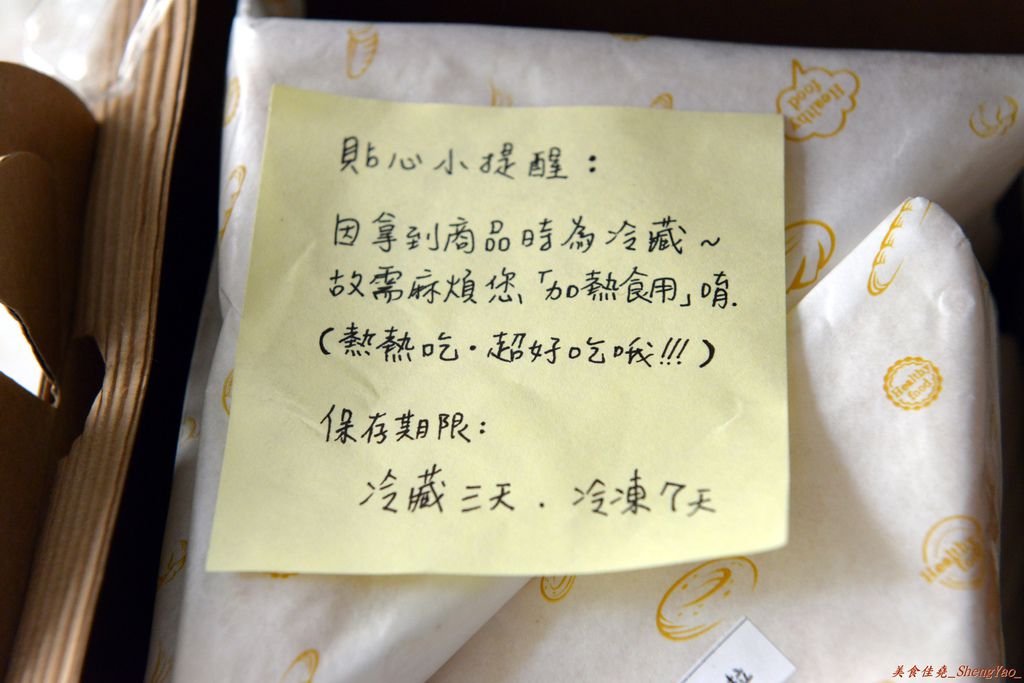 貼心小提醒：
因拿到商品時為冷藏～
故需麻煩您、「加熱食用」唷.
(熱熱吃．超好吃哦!!!)
保存期限：
冷藏三天．冷凍7天
Healthy food
Healthy food
Healthy
美食佳堯_ShengYao_